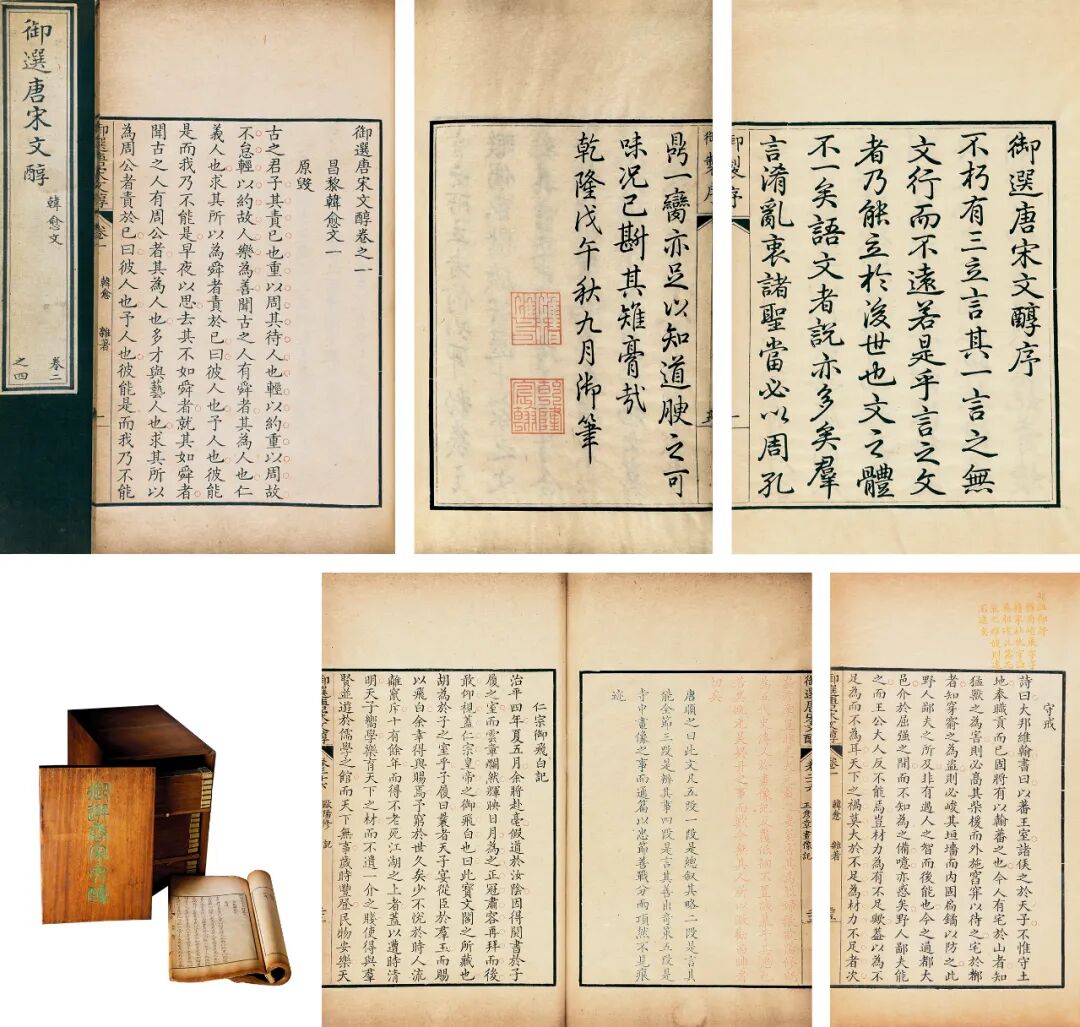 御選唐宋文醇
韓愈文
卷二
之四
御選唐宋文醇卷之一
昌黎韓愈文一
原毀
古之君子其責已也重以周其待人也輕以約重以周故
不怠輕以約故人樂為善聞古之人有舜者其為人也仁
義人也求其所以為舜者責於已曰彼人也予人也彼能
是而我乃不能是早夜以思去其不如舜者就其如舜者
聞古之人有周公者其為人也多才與藝人也求其所以
為周公者責於已曰彼人也予人也彼能是而我乃不能
御選唐宋文醇
卷一
韓愈
雜著
一
鼎一臠亦足以知道腴之可
味况已斟其雉膏哉
乾隆戊午秋九月御筆
御製序
御選唐宋文醇序
不朽有三立言其一言之無
文行而不遠若是乎言之文
者乃能立於後世也文之體
不一矣語文者說亦多矣羣
言淆亂衷諸聖當必以周孔
御製序
仁宗御飛白記
治平四年夏五月余將赴亳假道於汝陰因得閱書於子
履之室而雲章爛然輝映日月為之正冠肅容再拜而後
敢仰視蓋仁宗皇帝之御飛白也曰此寶文閣之所藏也
胡為於子之室乎子履曰曩者天子宴從臣於羣玉而賜
以飛白余幸得與賜焉予窮於世久矣少不悅於時人流
離竄斥十有餘年而得不老死江湖之上者蓋以遭時清
明天子嚮學樂育天下之材而不遺一介之賤使得與羣
賢並遊於儒學之館而天下無事歲時豐登民物安樂天
御選唐宋文醇
歐陽修
記
切矣
唐順之曰此文凡五段一段是總叙其略二段是言其
能全節三段是辨其事四段是言其善出奇策五段是
寺中畫像之事而通篇以忠節善戰分兩項然不見痕
迹
御選唐宋文醇
王彥章畫像記
守戒
詩曰大邦維翰書曰以蕃王室諸侯之於天子不惟守土
地奉職貢而已固將有以翰蕃之也今人有宅於山者知
猛獸之為害則必高其柴楥而外施窞穽以待之宅於都
者知穿窬之為盜則必峻其垣墻而内固扃鐍以防之此
野人鄙夫之所及非有過人之智而後能也今之通都大
邑介於屈强之間而不知為之備噫亦惑矣野人鄙夫能
之而王公大人反不能焉豈材力為有不足歟蓋以為不
足為而不為耳天下之禍莫大於不足為材力不足者次
御選唐宋文醇
卷一
韓愈
雜著
御選唐宋文醇